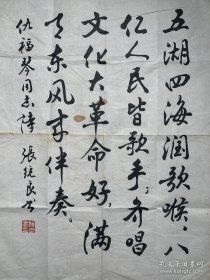 五湖四海润歌喉，八
亿人民皆歌手；齐唱
文化大革命好，满
天东风来伴奏。
仇福琴同志诗 张统良书